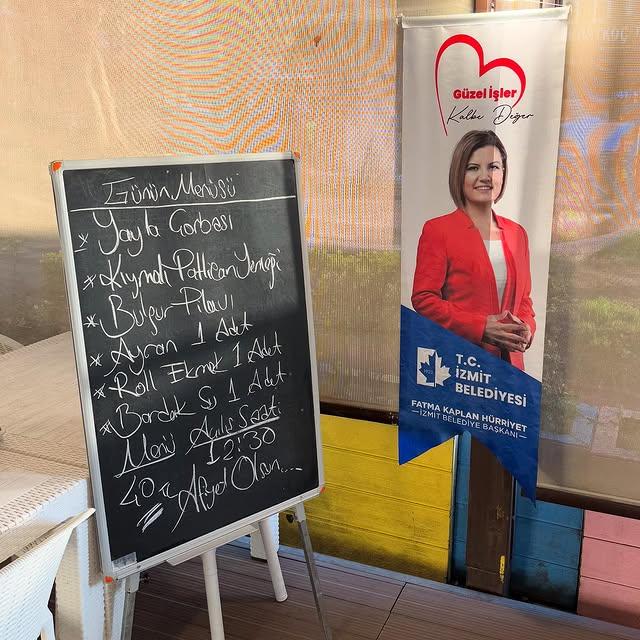 Günün Menüsü
* Yayla Çorbası
* Kıymalı Patlıcan Yemeği
* Bulgur Pilavı
* Ayran 1 Adet
* Roll Ekmek 1 Adet
* Bardak Su 1 Adet
Menü Açılış Saati
12:30
40 TL Afiyet Olsun...
Güzel İşler
Kalbe Değer
T.C.
İZMİT
BELEDİYESİ
FATMA KAPLAN HÜRRİYET
—İZMİT BELEDİYE BAŞKANI—